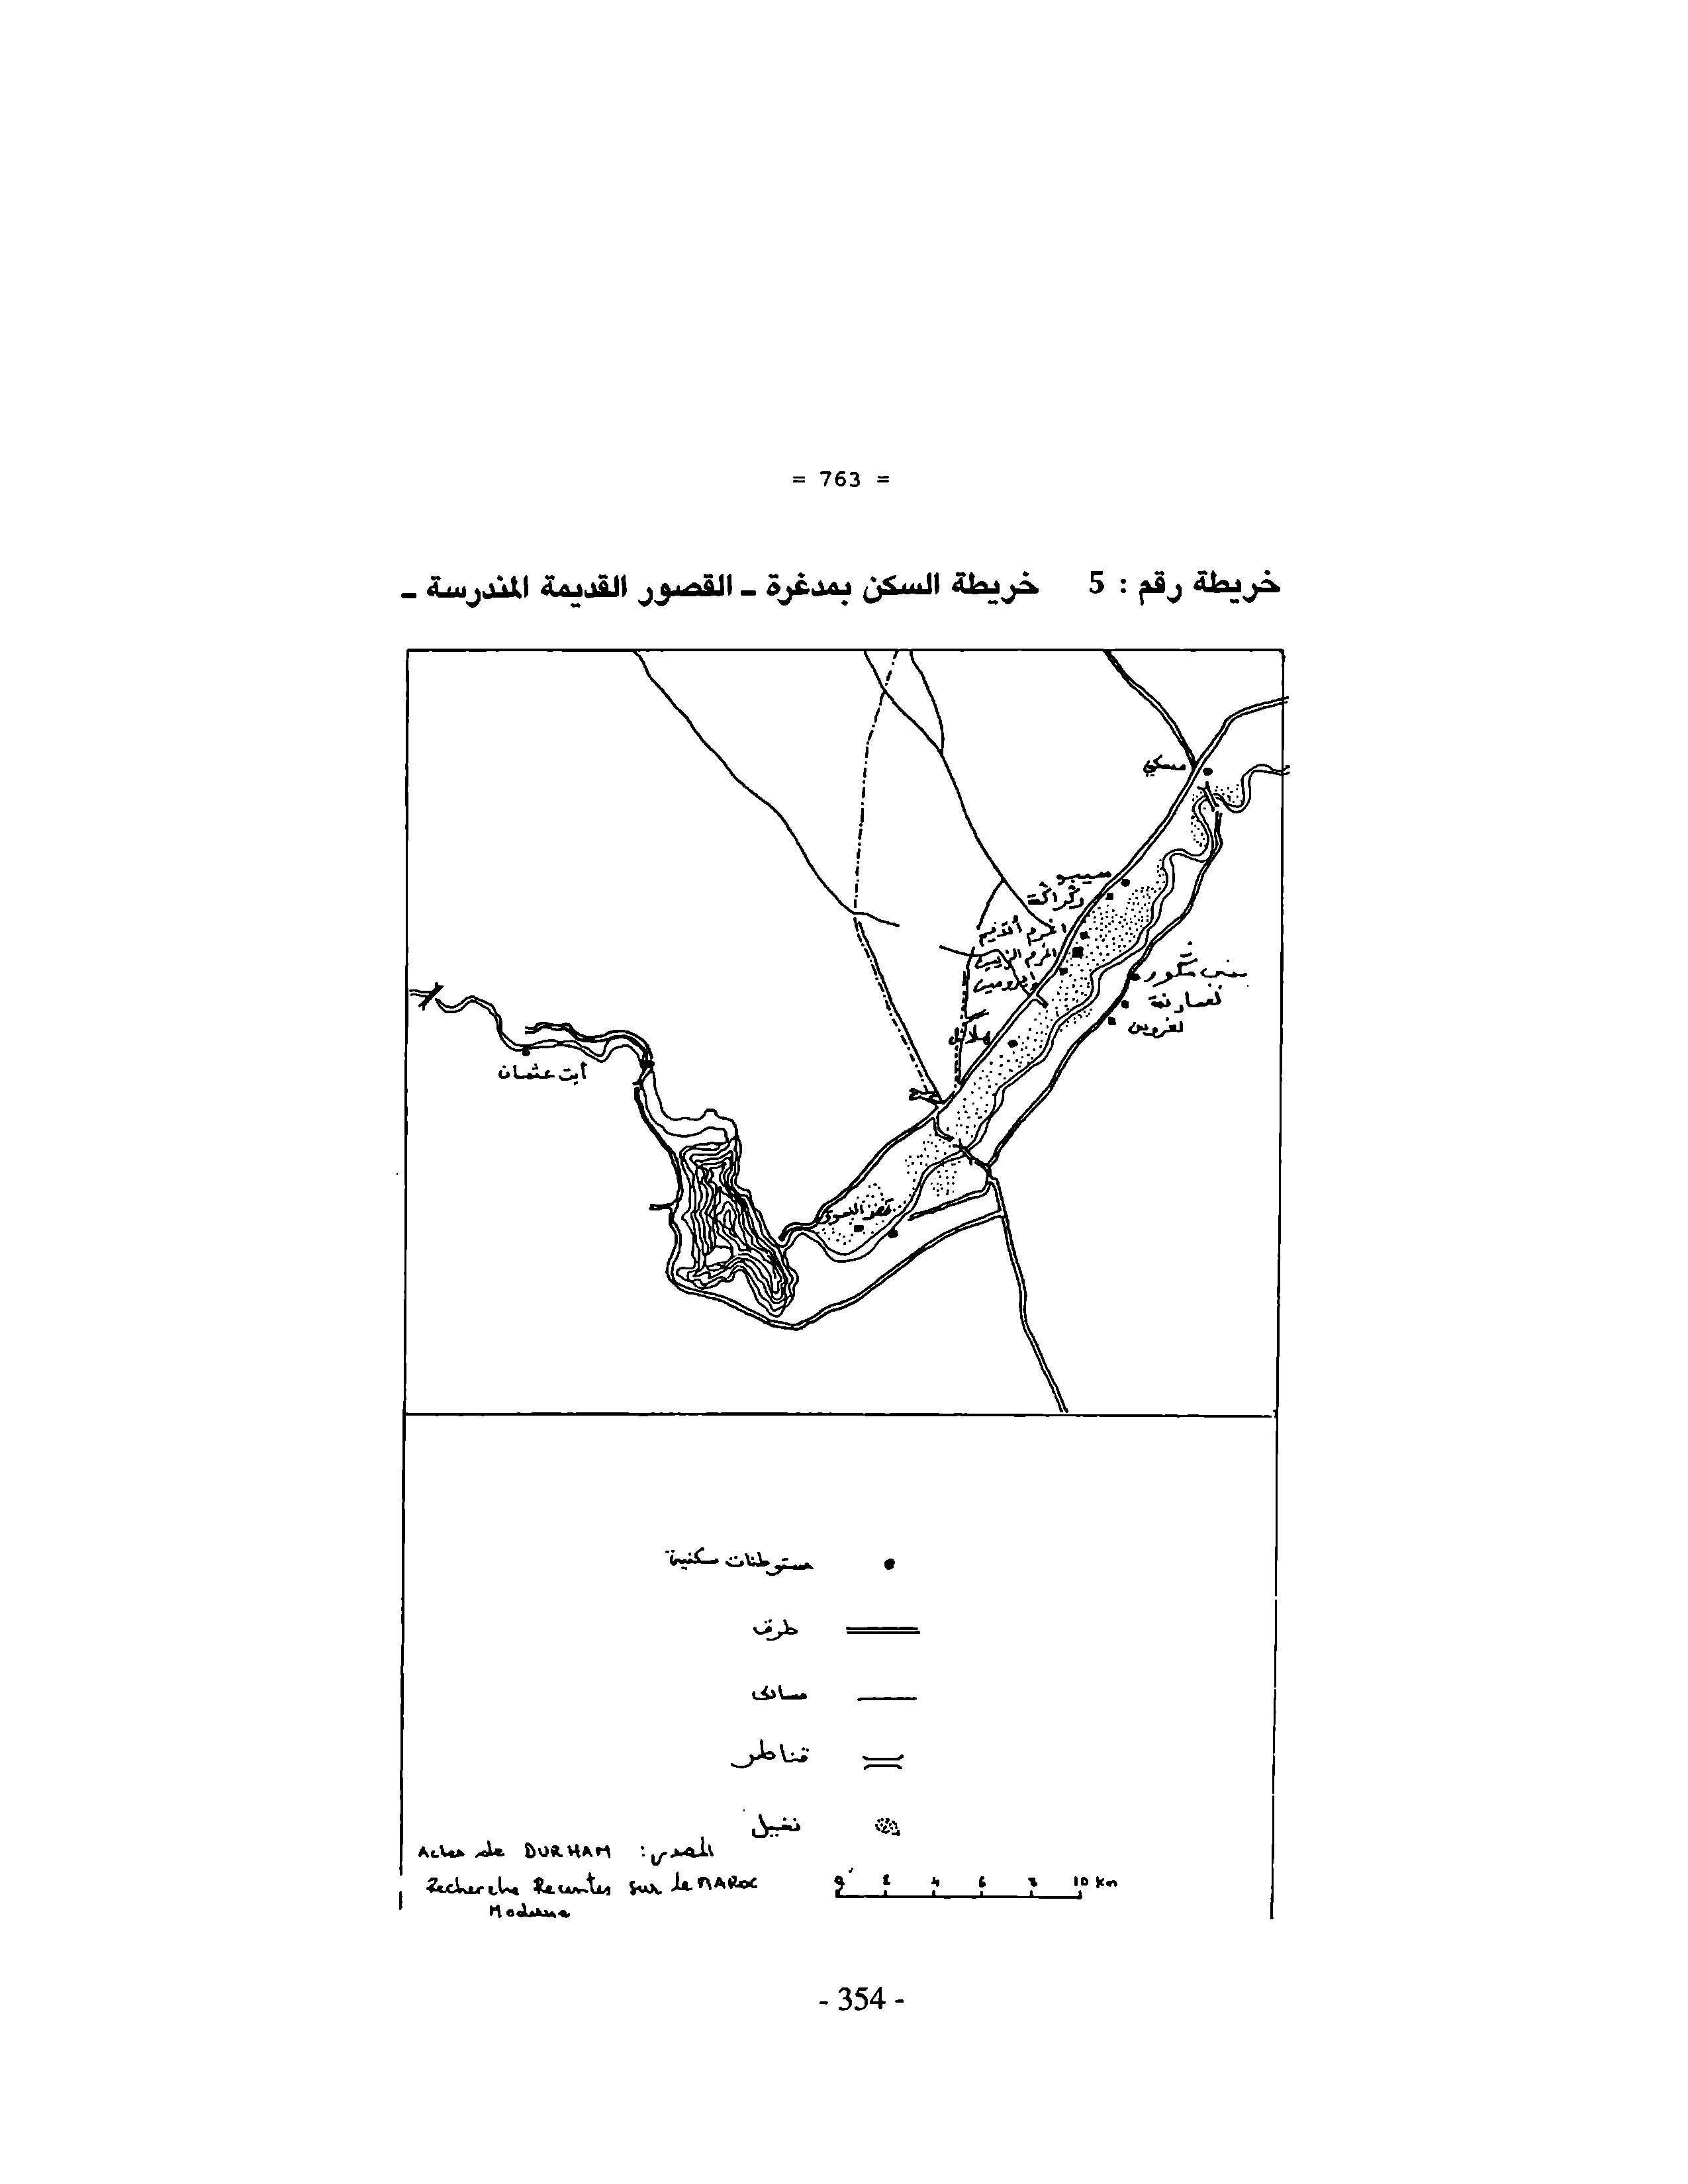 = 763 =
خريطة رقم : 5 خريطة السكن بمدغرة ـ القصور القديمة المندرسة ـ
مسكي
سيبو
رڭراڭة
اغرم أقديم
لعمارنة
هلال
أيت عثمان
مستوطنات سكنية
طرق
مسالك
قناطر
نخيل
المصدر: Actes de DURHAM
Recherche Recentes sur le MAROC
Moderne
0 2 4 6 8 10 Km
- 354 -